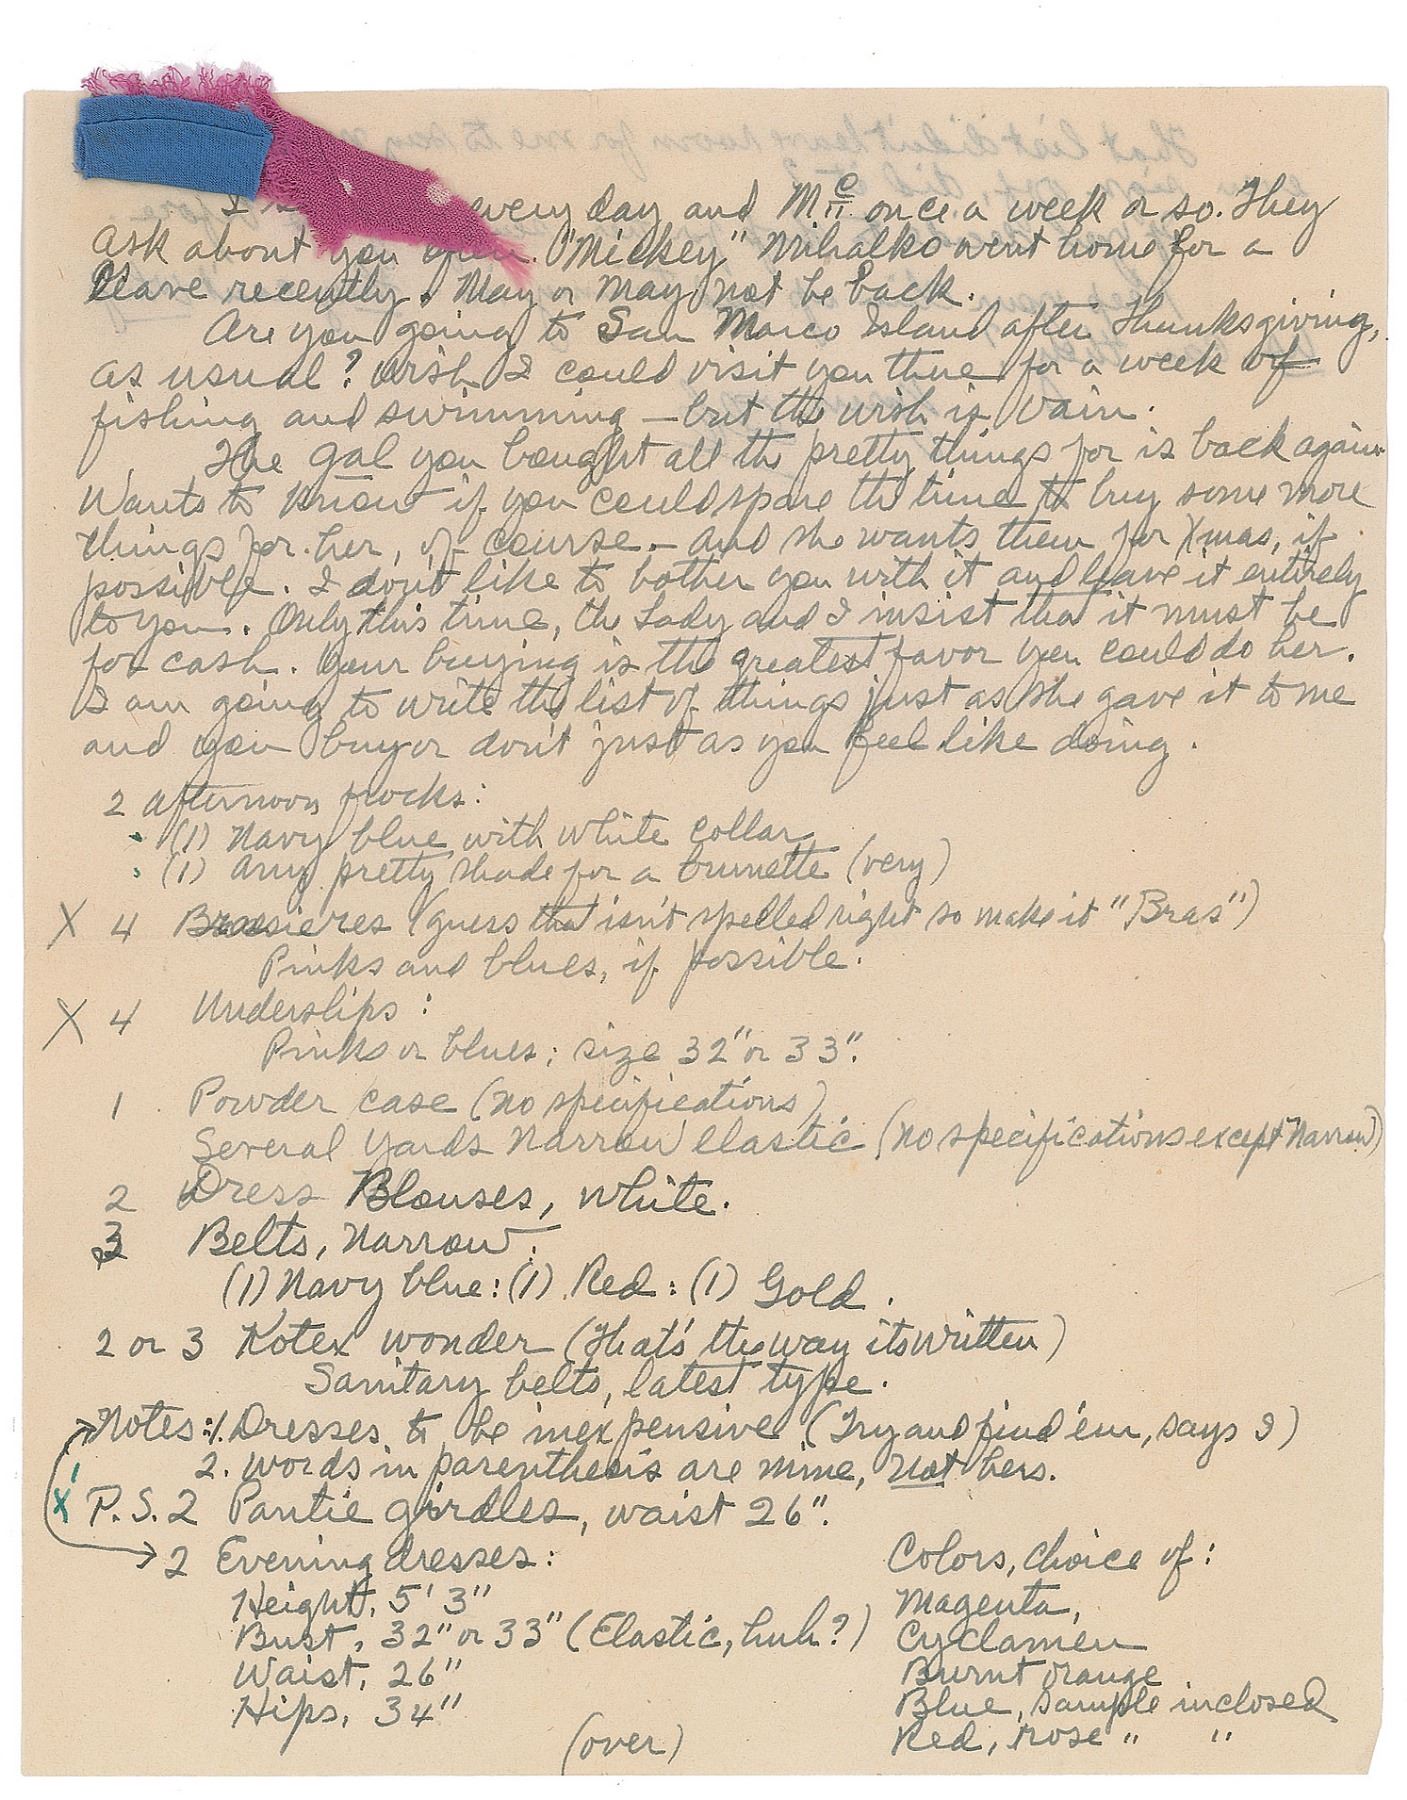 I every day and Mc once a week or so. They
ask about you often. "Mickey" Mihalko went home for a
leave recently. May or may not be back.
Are you going to San Marco Island after Thanksgiving,
as usual? Wish I could visit you there for a week of
fishing and swimming – but the wish is vain.
The gal you bought all the pretty things for is back again.
Wants to know if you could spare the time to buy some more
things for her, of course – and she wants them for Xmas, if
possible. I don't like to bother you with it and leave it entirely
to you. Only this time, the Lady and I insist that it must be
for cash. Your buying is the greatest favor you could do her.
I am going to write the list of things just as she gave it to me
and you buy or don't just as you feel like doing.
2 afternoon frocks:
(1) Navy blue with white collar
(1) Any pretty shade for a brunette (very)
X 4 Brassieres (guess that isn't spelled right so make it "Bras")
Pinks and blues, if possible.
X 4 Underslips:
Pinks or blues; size 32" or 33".
1 Powder case (no specifications)
Several yards narrow elastic (no specifications except narrow)
2 Dress Blouses, white.
3 Belts, narrow.
(1) Navy blue: (1) Red: (1) Gold.
2 or 3 Kotex wonder (that's the way its written)
Sanitary belts, latest type.
Notes: 1. Dresses to be inexpensive (Try and find 'em, says I)
2. Words in parenthesis are mine, not hers.
X P.S. 2 Pantie girdles, waist 26".
2 Evening dresses:
Height, 5' 3"
Bust, 32" or 33" (Elastic, huh?)
Waist, 26"
Hips, 34"
Colors, choice of:
Magenta,
Cyclamen
Burnt orange
Blue, sample inclosed
Red, rose " "
(over)